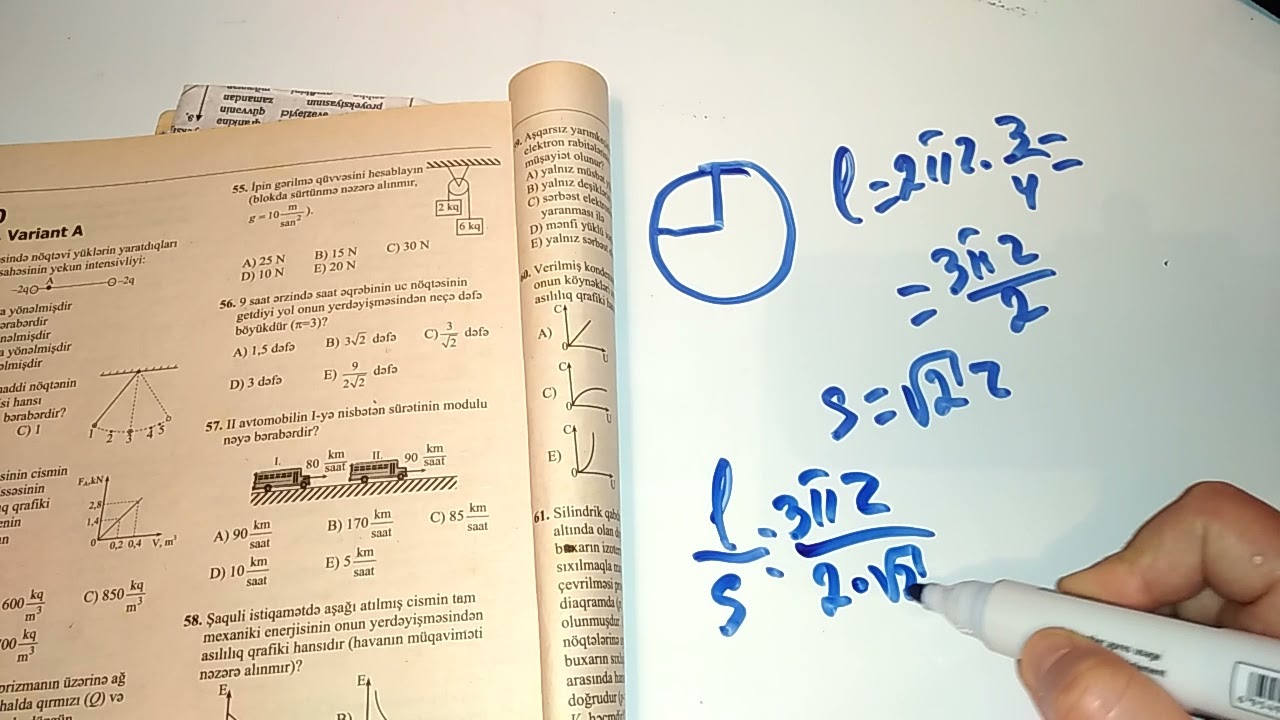 proyeksiyasının
zamandan
əvəzləyici
qüvvənin
Variant A
sində nöqtəvi yüklərin yaratdıqları
sahəsinin yekun intensivliyi:
-2q A -2q
a yönəlmişdir
ərabərdir
nəlmişdir
a yönəlmişdir
əlmişdir
addi nöqtənin
si hansı
bərabərdir?
C) 1
1 2 3 4 5
sinin cismin
ssəsinin
q qrafiki
enin
Fₐ,kN
2,8
1,4
0 0,2 0,4 V, m³
600 kq/m³ C) 850 kq/m³
700 kq/m³
prizmanın üzərinə ağ
halda qırmızı (Q) və
55. İpin gərilmə qüvvəsini hesablayın
(blokda sürtünmə nəzərə alınmır,
g = 10 m/san²).
2 kq
6 kq
A) 25 N B) 15 N C) 30 N
D) 10 N E) 20 N
56. 9 saat ərzində saat əqrəbinin uc nöqtəsinin
getdiyi yol onun yerdəyişməsindən neçə dəfə
böyükdür (π=3)?
A) 1,5 dəfə B) 3√2 dəfə C) 3/√2 dəfə
D) 3 dəfə E) 9/2√2 dəfə
57. II avtomobilin I-yə nisbətən sürətinin modulu
nəyə bərabərdir?
I. 80 km/saat II. 90 km/saat
A) 90 km/saat B) 170 km/saat C) 85 km/saat
D) 10 km/saat E) 5 km/saat
58. Şaquli istiqamətdə aşağı atılmış cismin tam
mexaniki enerjisinin onun yerdəyişməsindən
asılılıq qrafiki hansıdır (havanın müqaviməti
nəzərə alınmır)?
E E
B)
Aşqarsız
elektron rabitələ
müşayiət olunur?
A) yalnız
B) yalnız
C) sərbəst
yaranması ilə
D) mənfi
E) yalnız
Verilmiş
onun
asılılıq qrafiki
A) C 0 U
C) C 0 U
E) C 0 U
61. Silindrik
altında olan
buxarın
sıxılmaqla
çevrilməsi
diaqramda
olunmuşdur
nöqtələrinə
buxarın
arasında
doğrudur
l = 2πr · 3/4 =
= 3πr/2
S = √2 r
l/S = 3πr/2·√2